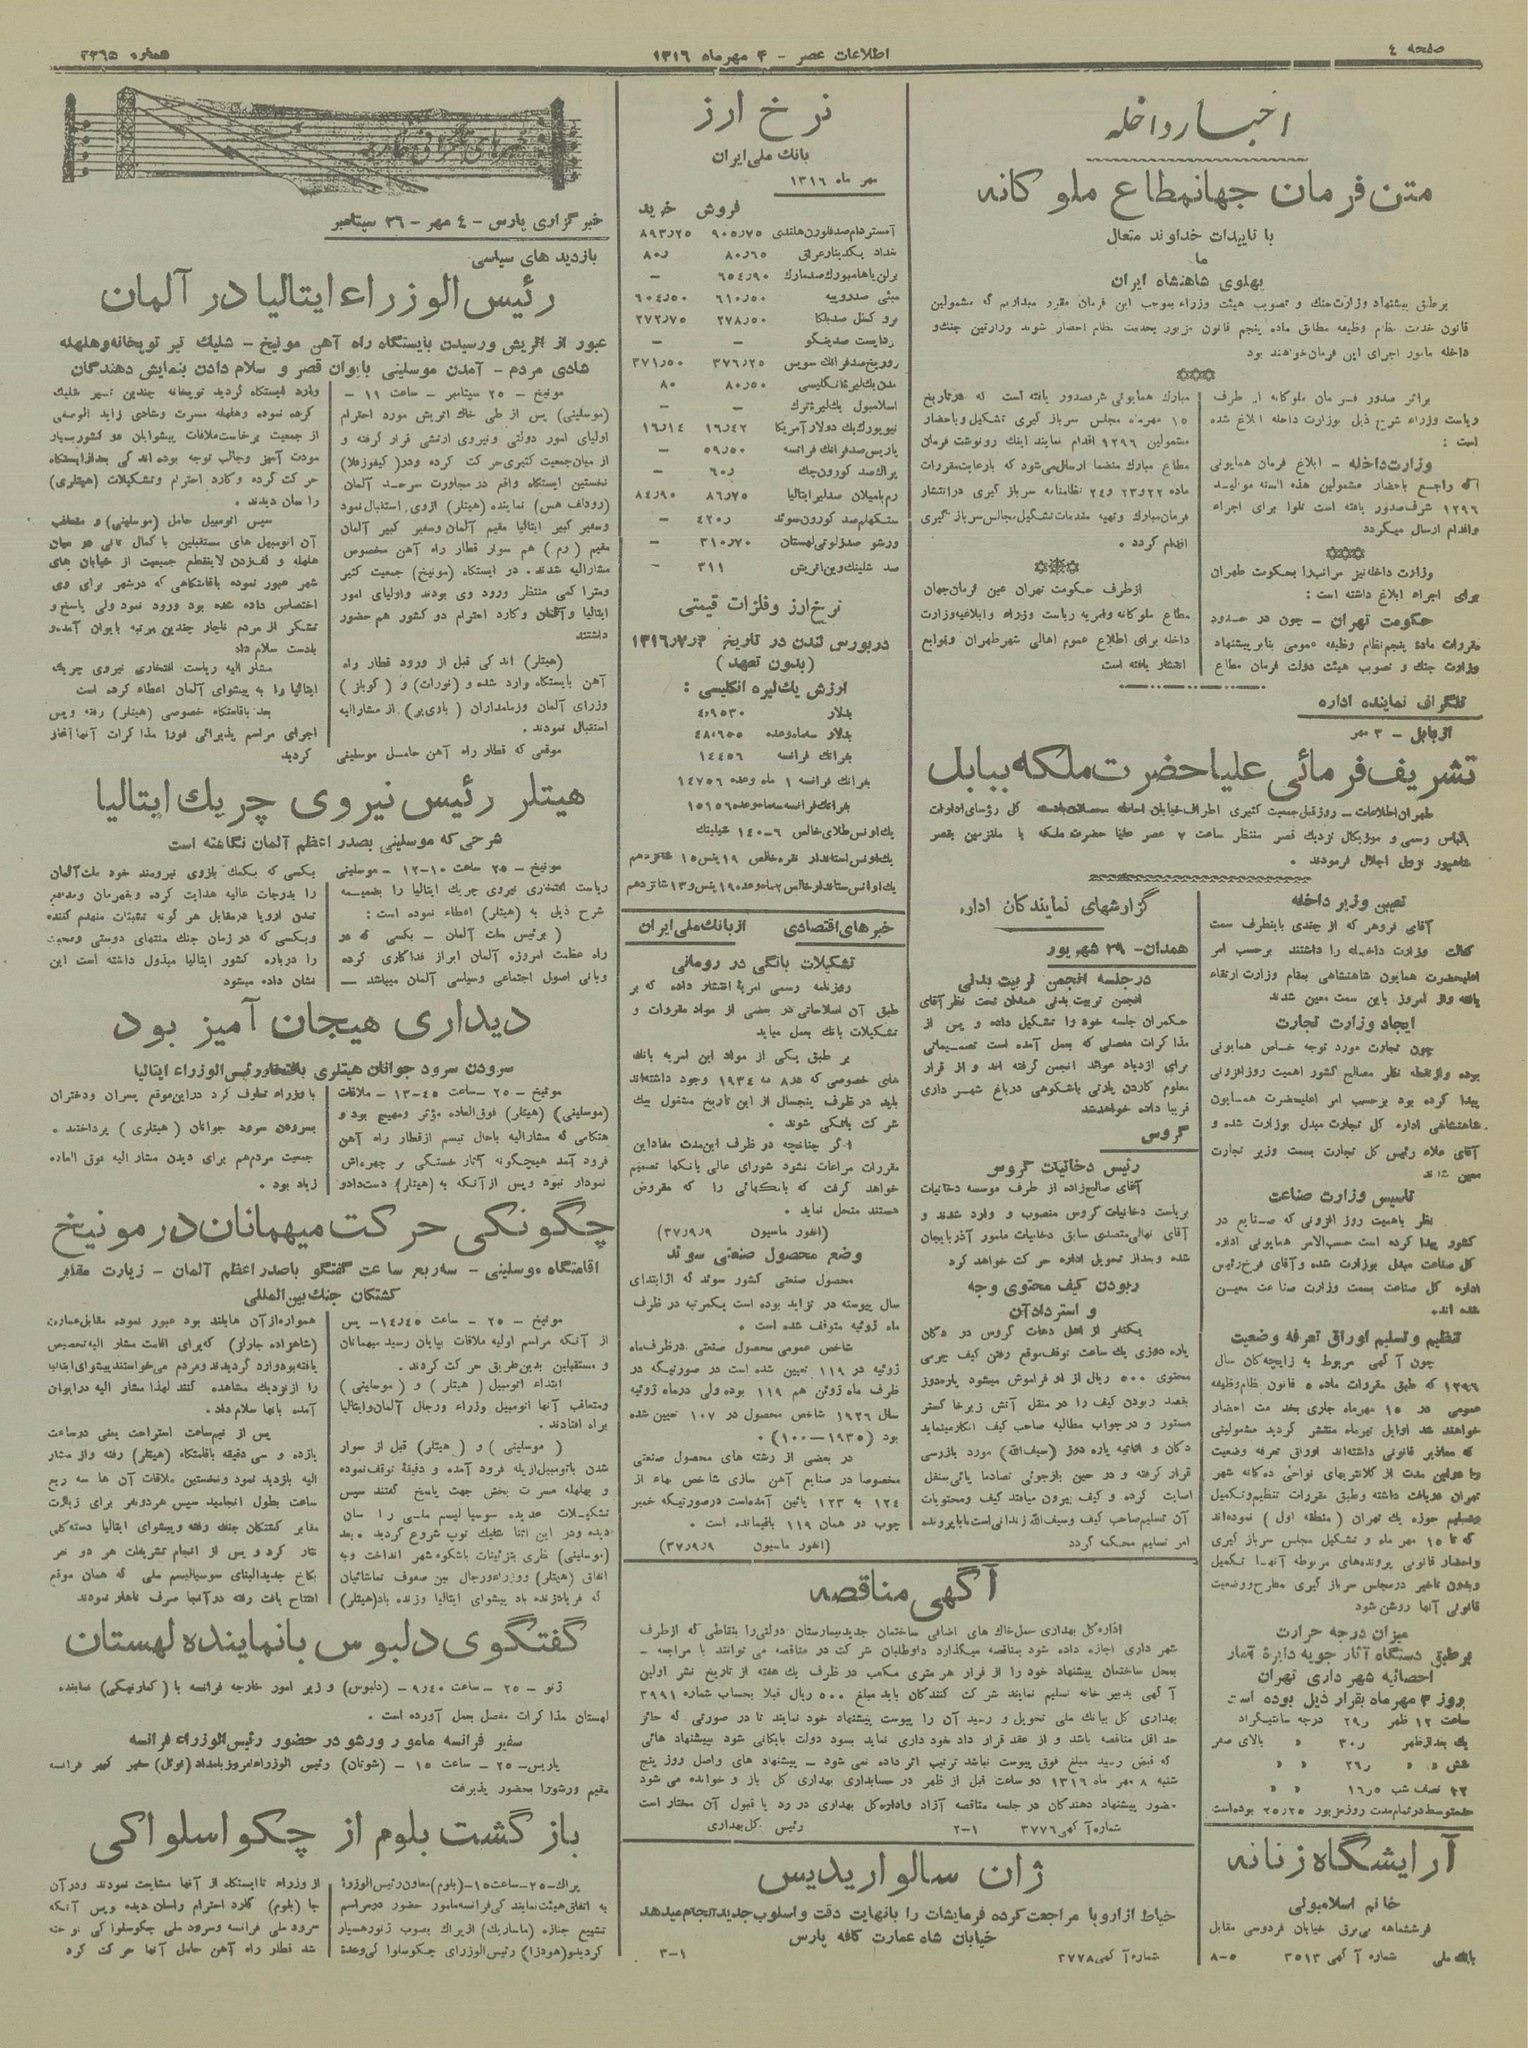 صفحه ٤
اطلاعات عصر - ۴ مهرماه ١٣١٦
شماره ٣٣٦٥
اخبار داخله
متن فرمان جهانمطاع ملوکانه
با تاییدات خداوند متعال
ما
پهلوی شاهنشاه ایران
برطبق پیشنهاد وزارت جنك و تصویب هیئت وزراء بموجب این فرمان مقرر میداریم که مشمولین
قانون خدمت نظام وظیفه مطابق ماده پنجم قانون مزبور بخدمت نظام احضار شوند وزارتین جنك و
داخله مامور اجرای این فرمان خواهند بود
براثر صدور فرمان ملوکانه از طرف
ریاست وزراء شرح ذیل بوزارت داخله ابلاغ شده
است :
وزارت داخله - ابلاغ فرمان همایونی
که راجع باحضار مشمولین هذه السنه موالید
١٢٩٦ شرف صدور یافته است تلوا برای اجراء
واقدام ارسال میگردد
وزارت داخله نیز مراتب را بحکومت طهران
برای اجراء ابلاغ داشته است :
حکومت تهران - چون در حدود
مقررات مادۀ پنجم نظام وظیفه عمومی بنابر پیشنهاد
وزارت جنك و تصویب هیئت دولت فرمان مطاع
مبارك همایونی شرفصدور یافته است که در تاریخ
١٥ مهرماه مجلس سرباز گیری تشکیل و باحضار
مشمولین ١٢٩٦ اقدام نمایند اینك رونوشت فرمان
مطاع مبارك منضما ارسال می شود که با رعایت مقررات
ماده ٢٢ و ٢٣ و ٢٤ نظامنامه سرباز گیری در انتشار
فرمان مبارك و تهیه مقدمات تشکیل مجالس سرباز گیری
اقدام گردد .
از طرف حکومت تهران عین فرمان جهان
مطاع ملوکانه و امریه ریاست وزراء و ابلاغیه وزارت
داخله برای اطلاع عموم اهالی شهر طهران و توابع
انتشار یافته است
تلگراف نماینده اداره
از بابل - ٣ مهر
تشریف فرمائی علیاحضرت ملکه ببابل
طهران اطلاعات - روز قبل جمعیت کثیری اطراف خیابان
کل رؤسای ادارات
بالباس رسمی و موزیکال نزدیك قصر منتظر ساعت ٧ عصر علیا حضرت ملکه با ملتزمین بقصر
شاهپور نزول اجلال فرمودند .
تعیین وزیر داخله
آقای فروهر که از چندی باینطرف سمت
کفالت وزارت داخله را داشتند برحسب امر
اعلیحضرت همایون شاهنشاهی بمقام وزارت ارتقاء
یافته و از امروز باین سمت معین شدند
ایجاد وزارت تجارت
چون تجارت مورد توجه خاص همایونی
بوده و از نقطه نظر مصالح کشور اهمیت روز افزونی
پیدا کرده بود برحسب امر اعلیحضرت همایون
شاهنشاهی اداره کل تجارت مبدل بوزارت شده و
آقای علاء رئیس کل تجارت بسمت وزیر تجارت
معین شدند
تاسیس وزارت صناعت
نظر باهمیت روز افزونی که صنایع در
کشور پیدا کرده است حسب الامر همایونی اداره
کل صناعت مبدل بوزارت شده و آقای فرخ رئیس
اداره کل صناعت بسمت وزارت صناعت معین
شده اند.
تنظیم و تسلیم اوراق تعرفه وضعیت
چون آگهی مربوط به زایچه کان سال
١٢٩٦ که طبق مقررات ماده ٥ قانون نظام وظیفه
عمومی در ١٥ مهرماه جاری بخدمت احضار
خواهند شد اوایل تیرماه منتشر گردید مشمولینی
که معاذیر قانونی داشته اند اوراق تعرفه وضعیت
را در این مدت از کلانتریهای نواحی ده گانه شهر
تهران دریافت داشته و طبق مقررات تنظیم و تکمیل
و تسلیم حوزه یك تهران ( منطقه اول ) نموده اند
که تا ١٥ مهر ماه و تشکیل مجلس سرباز گیری
و احضار قانونی پرونده های مربوطه آنها تکمیل
و بدون تاخیر در مجلس سرباز گیری مطرح و وضعیت
قانونی آنها روشن شود
میزان درجه حرارت
برطبق دستگاه آثار جویه دایرۀ آمار
احصائیه شهرداری تهران
روز ٣ مهرماه بقرار ذیل بوده است
ساعت ١٢ ظهر ٢٩ر درجه سانتیگراد
یك بعدازظهر ٣٠ر « بالای صفر
شش « « ٢٦ر « «
١٢ نصف شب ١٦ر٥ « «
حد متوسط در تمام مدت روز مزبور ٢٥ر٢٥ بوده است
آرایشگاه زنانه
خانم اسلامبولی
فرششماهه بی برق خیابان فردوسی مقابل
بانك ملی شماره آگهی ٣٥١٣ ٥-٨
گزارشهای نمایندگان اداره
همدان - ٢٩ شهریور
در جلسه انجمن تربیت بدنی
انجمن تربیت بدنی همدان تحت نظر آقای
حکمران جلسه خود را تشکیل داده و پس از
مذاکرات مفصلی که بعمل آمده است تصمیماتی
برای ازدیاد عوائد انجمن گرفته اند و از قرار
معلوم گاردن پارتی باشکوهی در باغ شهرداری
قریبا داده خواهد شد
گروس
رئیس دخانیات گروس
آقای صالح زاده از طرف موسسه دخانیات
بریاست دخانیات گروس منصوب و وارد شدند و
آقای نهالی متصدی سابق دخانیات مامور آذربایجان
شده و بعد از تحویل اداره حرکت خواهد کرد
ربودن کیف محتوی وجه
و استرداد آن
یکنفر از اهل دهات گروس در دکان
پاره دوزی یك ساعت توقف موقع رفتن کیف چرمی
محتوی ٥٠٠ ریال از او فراموش میشود پاره دوز
بقصد ربودن کیف را در منقل آتش زیر خاکستر
مستور و در جواب مطالبه صاحب کیف انکار مینماید
دکان و اثاثیه پاره دوز (سیف الله) مورد بازرسی
قرار گرفته و در حین بازجوئی تصادما پائی بمنقل
اصابت کرده و کیف بیرون میافتد کیف و محتویات
آن تسلیم صاحب کیف و سیف الله زندانی است با پرونده
امر تسلیم محکمه گردد
نرخ ارز
بانك ملی ایران
مهر ماه ١٣١٦
فروش خرید
آمستردام صد فلورن هلندی ٩٠٥٫٧٥ ٨٩٣٫٢٥
بغداد یکدینار عراقی ٨٠٫٦٥ ٨٠ر
برلن یا هامبورك صد مارك ٦٥٤٫٩٠ -
بمبئی صد روپیه ٦١٠٫٥٠ ٦٠٤٫٥٠
بروکسل صد بلکا ٢٧٨٫٥٠ ٢٧٢٫٧٥
بوداپست صد پنگو - -
زوریخ صد فرانك سویس ٣٧٦٫٢٥ ٣٧١٫٥٠
لندن یك لیره انگلیسی ٨٠٫٥٠ ٨٠
اسلامبول یك لیره ترك - -
نیویورك یك دولار آمریکا ١٦٫٤٢ ١٦٫١٤
پاریس صد فرانك فرانسه ٥٩٫٥٠ -
پراك صد کورون چك ٦٠ر -
رم یا میلان صد لیر ایتالیا ٨٦٫٧٥ ٨٤٫٩٠
ستکهلم صد کورون سوئد ٤٢٠ر -
ورشو صد زلوتی لهستان ٣١٠٫٧٠ -
صد شلینك وین اتریش ٣١١ -
نرخ ارز و فلزات قیمتی
در بورس لندن در تاریخ ١٣١٦٫٧٫٣
(بدون تعهد)
ارزش یك لیره انگلیسی :
بدلار ٤٫٩٥٣٠
بدلار سه ماه وعده ٤٨٫٦٥٥
بفرانك فرانسه ١٤٤٥٦
بفرانك فرانسه ١ ماه وعده ١٤٧٥٦
بفرانك فرانسه سه ماه وعده ١٥١٥٦
یك اونس طلای خالص ٦-١٤٠ شیلینك
یك اونس استاندارد نقره خالص ١٩ پنس ١٥ شانزدهم
یك اونس ستاندارد خالص ٢ ماه وعده ١٩ پنس و ١٣ شانزدهم
خبرهای اقتصادی از بانك ملی ایران
تشکیلات بانگی در رومانی
روزنامه رسمی امریۀ انتشار داده که بر
طبق آن اصلاحاتی در بعضی از مواد مقررات و
تشکیلات بانك بعمل میاید
بر طبق یکی از مواد این امریه بانك
های خصوصی که در ٨ مه ١٩٣٤ وجود داشته اند
باید در ظرف پنجسال از این تاریخ مشغول بیك
شرکت بانکی شوند .
اگر چنانچه در ظرف این مدت مفاد این
مقررات مراعات نشود شورای عالی بانکها تصمیم
خواهد گرفت که بانکهائی را که مقروض
هستند منحل نماید .
(انفور ماسیون ٣٧٫٩٫٩)
وضع محصول صنعتی سوئد
محصول صنعتی کشور سوئد که از ابتدای
سال پیوسته در تزاید بوده است یکمرتبه در ظرف
ماه ژوئیه متوقف شده است .
شاخص عمومی محصول صنعتی در ظرف ماه
ژوئیه در ١١٩ تعیین شده است در صورتیکه در
ظرف ماه ژوئن هم ١١٩ بوده ولی در ماه ژوئیه
سال ١٩٣٦ شاخص محصول در ١٠٧ تعیین شده
بود (١٩٣٥ — ١٠٠) .
در بعضی از رشته های محصول صنعتی
مخصوصا در صنایع آهن سازی شاخص بهاء از
١٢٤ به ١٢٣ پائین آمده است در صورتیکه خمیر
چوب در همان ١١٩ باقیمانده است .
(انفور ماسیون ٣٧٫٩٫٩)
آگهی مناقصه
اداره کل بهداری حمل خاك های اضافی ساختمان جدید بیمارستان دولتی را بنقاطی که از طرف
شهرداری اجازه داده شود بمناقصه میگذارد داوطلبان شرکت در مناقصه می توانند با مراجعه -
بمحل ساختمان پیشنهاد خود را از قرار هر متری مکعب در ظرف یك هفته از تاریخ نشر اولین
آگهی بدبیر خانه تسلیم نمایند شرکت کنندگان باید مبلغ ٥٠٠ ریال قبلا بحساب شماره ٣٩٩١
بهداری کل ببانك ملی تحویل و رسید آن را پیوست پیشنهاد خود نمایند تا در صورتی که حائز
حداقل مناقصه باشد و از عقد قرارداد خودداری نماید بسود دولت بایگانی شود بپیشنهادهائی
که قبض رسید مبلغ فوق پیوست نباشد ترتیب اثر داده نمی شود - پیشنهاد های واصل روز پنج
شنبه ٨ مهر ماه ١٣١٦ دو ساعت قبل از ظهر در حسابداری بهداری کل باز و خوانده می شود
حضور پیشنهاد دهندگان در جلسه مناقصه آزاد و اداره کل بهداری در رد یا قبول آن مختار است
شماره آگهی ٣٧٧٦ ١-٢ رئیس کل بهداری
ژان سالواریدیس
خیاط از اروپا مراجعت کرده فرمایشات را با نهایت دقت و اسلوب جدید انجام میدهد
خیابان شاه عمارت کافه پارس
شماره آگهی ٣٧٧٨ ١-٣
خبرگزاری پارس - ٤ مهر - ٢٦ سپتامبر
بازدید های سیاسی
رئیس الوزراء ایتالیا در آلمان
عبور از اتریش و رسیدن بایستگاه راه آهن مونیخ - شلیك تیر توپخانه و هلهله
شادی مردم - آمدن موسلینی بایوان قصر و سلام دادن بنمایش دهندگان
مونیخ - ٢٥ سپتامبر - ساعت ١١ -
(موسلینی) پس از طی خاك اتریش مورد احترام
اولیای امور دولتی و نیروی ارتشی قرار گرفته و
از میان جمعیت کثیری حرکت کرده و در (کیفوزفلا)
نخستین ایستگاه واقع در مجاورت سرحد آلمان
(رودلف هس) نماینده (هیتلر) از وی استقبال نمود
و سفیر کبیر ایتالیا مقیم آلمان و سفیر کبیر آلمان
مقیم (رم) هم سوار قطار راه آهن مخصوص
مشارالیه شدند. در ایستگاه (مونیخ) جمعیت کثیر
و متراکمی منتظر ورود وی بودند و اولیای امور
ایتالیا و آلمان و گارد احترام دو کشور هم حضور
داشتند
(هیتلر) اندکی قبل از ورود قطار راه
آهن بایستگاه وارد شده و (نورات) و (گوبلز)
وزرای آلمان و زمامداران (باویر) از مشارالیه
استقبال نمودند .
موقعی که قطار راه آهن حامل موسلینی
وارد ایستگاه گردید توپخانه چندین تیر شلیك
کرده نموده و هلهله مسرت و شادی زاید الوصفی
از جمعیت برخاست ملاقات پیشوایان دو کشور بسیار
مودت آمیز و جالب توجه بوده اندکی بعد از ایستگاه
حرکت کرده و گارد احترام و تشکیلات (هیتلری)
را سان دیدند .
سپس اتومبیل حامل (موسلینی) و متعاقب
آن اتومبیل های مستقبلین با کمال تانی در میان
هلهله و لغزدن لاینقطع جمعیت از خیابان های
شهر عبور نموده باقامتگاهی که در شهر برای وی
اختصاص داده شده بود ورود نمود ولی بپاسخ و
تشکر از مردم ناچار چندین مرتبه بایوان آمده و
بادست سلام داد
مشارالیه ریاست افتخاری نیروی چریك
ایتالیا را به پیشوای آلمان اعطاء کرده است
بعد باقامتگاه خصوصی (هیتلر) رفته و پس
اجرای مراسم پذیرائی فورا مذاکرات آنها آغاز
گردید
هیتلر رئیس نیروی چریك ایتالیا
شرحی که موسلینی بصدر اعظم آلمان نگاشته است
مونیخ - ٢٥ ساعت ١٠-١٢ - موسلینی
ریاست افتخاری نیروی چریك ایتالیا را بضمیمه
شرح ذیل به (هیتلر) اعطاء نموده است :
( برئیس ملت آلمان - بکسی که در
راه عظمت امروزه آلمان ابراز فداکاری کرده
و بانی اصول اجتماعی و سیاسی آلمان میباشد —
بکسی که بکمك بازوی نیرومند خود ملت آلمان
را بدرجات عالیه هدایت کرده و قهرمان و مدعی
تمدن اروپا در مقابل هر گونه تشبثات منهدم کننده
و بکسی که در زمان جنك منتهای دوستی و محبت
را درباره کشور ایتالیا مبذول داشته است این
نشان داده میشود
دیداری هیجان آمیز بود
سرودن سرود جوانان هیتلری بافتخار رئیس الوزراء ایتالیا
مونیخ - ٢٥ - ساعت ٤٥-١٣ - ملاقات
(موسلینی) (هیتلر) فوق العاده مؤثر و مهیج بود و
هنگامی که مشارالیه با حال تبسم از قطار راه آهن
فرود آمد هیچگونه آثار خستگی بر چهره اش
نمودار نبود و پس از آنکه به (هیتلر) دست داد و
با وزراء تعارف کرد در این موقع پسران و دختران
بسرودن سرود جوانان (هیتلری) پرداختند .
جمعیت مردم هم برای دیدن مشارالیه فوق العاده
زیاد بود .
چگونگی حرکت میهمانان در مونیخ
اقامتگاه موسلینی - سه ربع ساعت گفتگو با صدر اعظم آلمان - زیارت مقابر
کشتگان جنك بین المللی
مونیخ - ٢٥ - ساعت ١٤٫٤٥ - پس
از آنکه مراسم اولیه ملاقات بپایان رسید میهمانان
و مستقبلین بدین طریق حرکت کردند .
ابتداء اتومبیل (هیتلر) و (موسلینی)
و متعاقب آنها اتومبیل وزراء و رجال آلمان و ایتالیا
براه افتادند .
(موسلینی) و (هیتلر) قبل از سوار
شدن باتومبیل از پله فرود آمده و دقیقۀ توقف نموده
و بهلهله مسرت بخش جهت پاسخ گفتند سپس
تشکیلات عدیده سوسیالیسم ملی را سان
دیده و در این اثنا شلیك توپ شروع گردید . بعد
(موسلینی) نظری بتزئینات باشکوه شهر انداخت و به
اتفاق (هیتلر) و وزراء و رجال بین صفوف تماشائیان
که فریاد زنده باد پیشوای ایتالیا و زنده باد (هیتلر)
همواره از آن ها بلند بود عبور نموده مقابل عمارت
(شاهزاده جارلز) که برای اقامت مشارالیه تخصیص
یافته بود وارد گردیدند و مردم می خواستند پیشوای ایتالیا
را از نزدیك مشاهده کنند لهذا مشارالیه در ایوان
آمده بآنها سلام داد .
پس از نیم ساعت استراحت یعنی دو ساعت
یازده و سی دقیقه باقامتگاه (هیتلر) رفته و از مشار
الیه بازدید نمود و نخستین ملاقات آن ها سه ربع
ساعت بطول انجامید سپس هر دو نفر برای زیارت
مقابر کشتگان جنك رفته و پیشوای ایتالیا دسته گلی
نثار کرد و پس از انجام تشریفات هر دو نفر
بکاخ جدیدالبنای سوسیالیسم ملی که همان موقع
افتتاح یافت رفته در آنجا صرف ناهار نمودند
گفتگوی دلبوس با نماینده لهستان
ژنو - ٢٥ - ساعت ٩٫٤٠ - (دلبوس) وزیر امور خارجه فرانسه با (کمارنیکی) نماینده
لهستان مذاکرات مفصل بعمل آورده است .
سفیر فرانسه مامور ورشو در حضور رئیس الوزراء فرانسه
پاریس - ٢٥ - ساعت ١٥ - (شوتان) رئیس الوزراء امروز بامداد (نوئل) سفیر کبیر فرانسه
مقیم ورشو را بحضور پذیرفت
بازگشت بلوم از چکواسلواکی
پراك - ٢٥ - ساعت ١٥ - (بلوم) معاون رئیس الوزراء
به اتفاق هیئت نمایندگی فرانسه مامور حضور در مراسم
تشییع جنازه (ماساریك) از پراك بصوب ژنو رهسپار
گردید و (هودزا) رئیس الوزرای چکوسلواکی و عدۀ
از وزراء تا ایستگاه از آنها مشایعت نمودند و در آن
جا (بلوم) گارد احترام را سان دیده و پس آنکه
سرود ملی فرانسه و سرود ملی چکوسلواکی نواخته
شد قطار راه آهن حامل آنها حرکت کرد